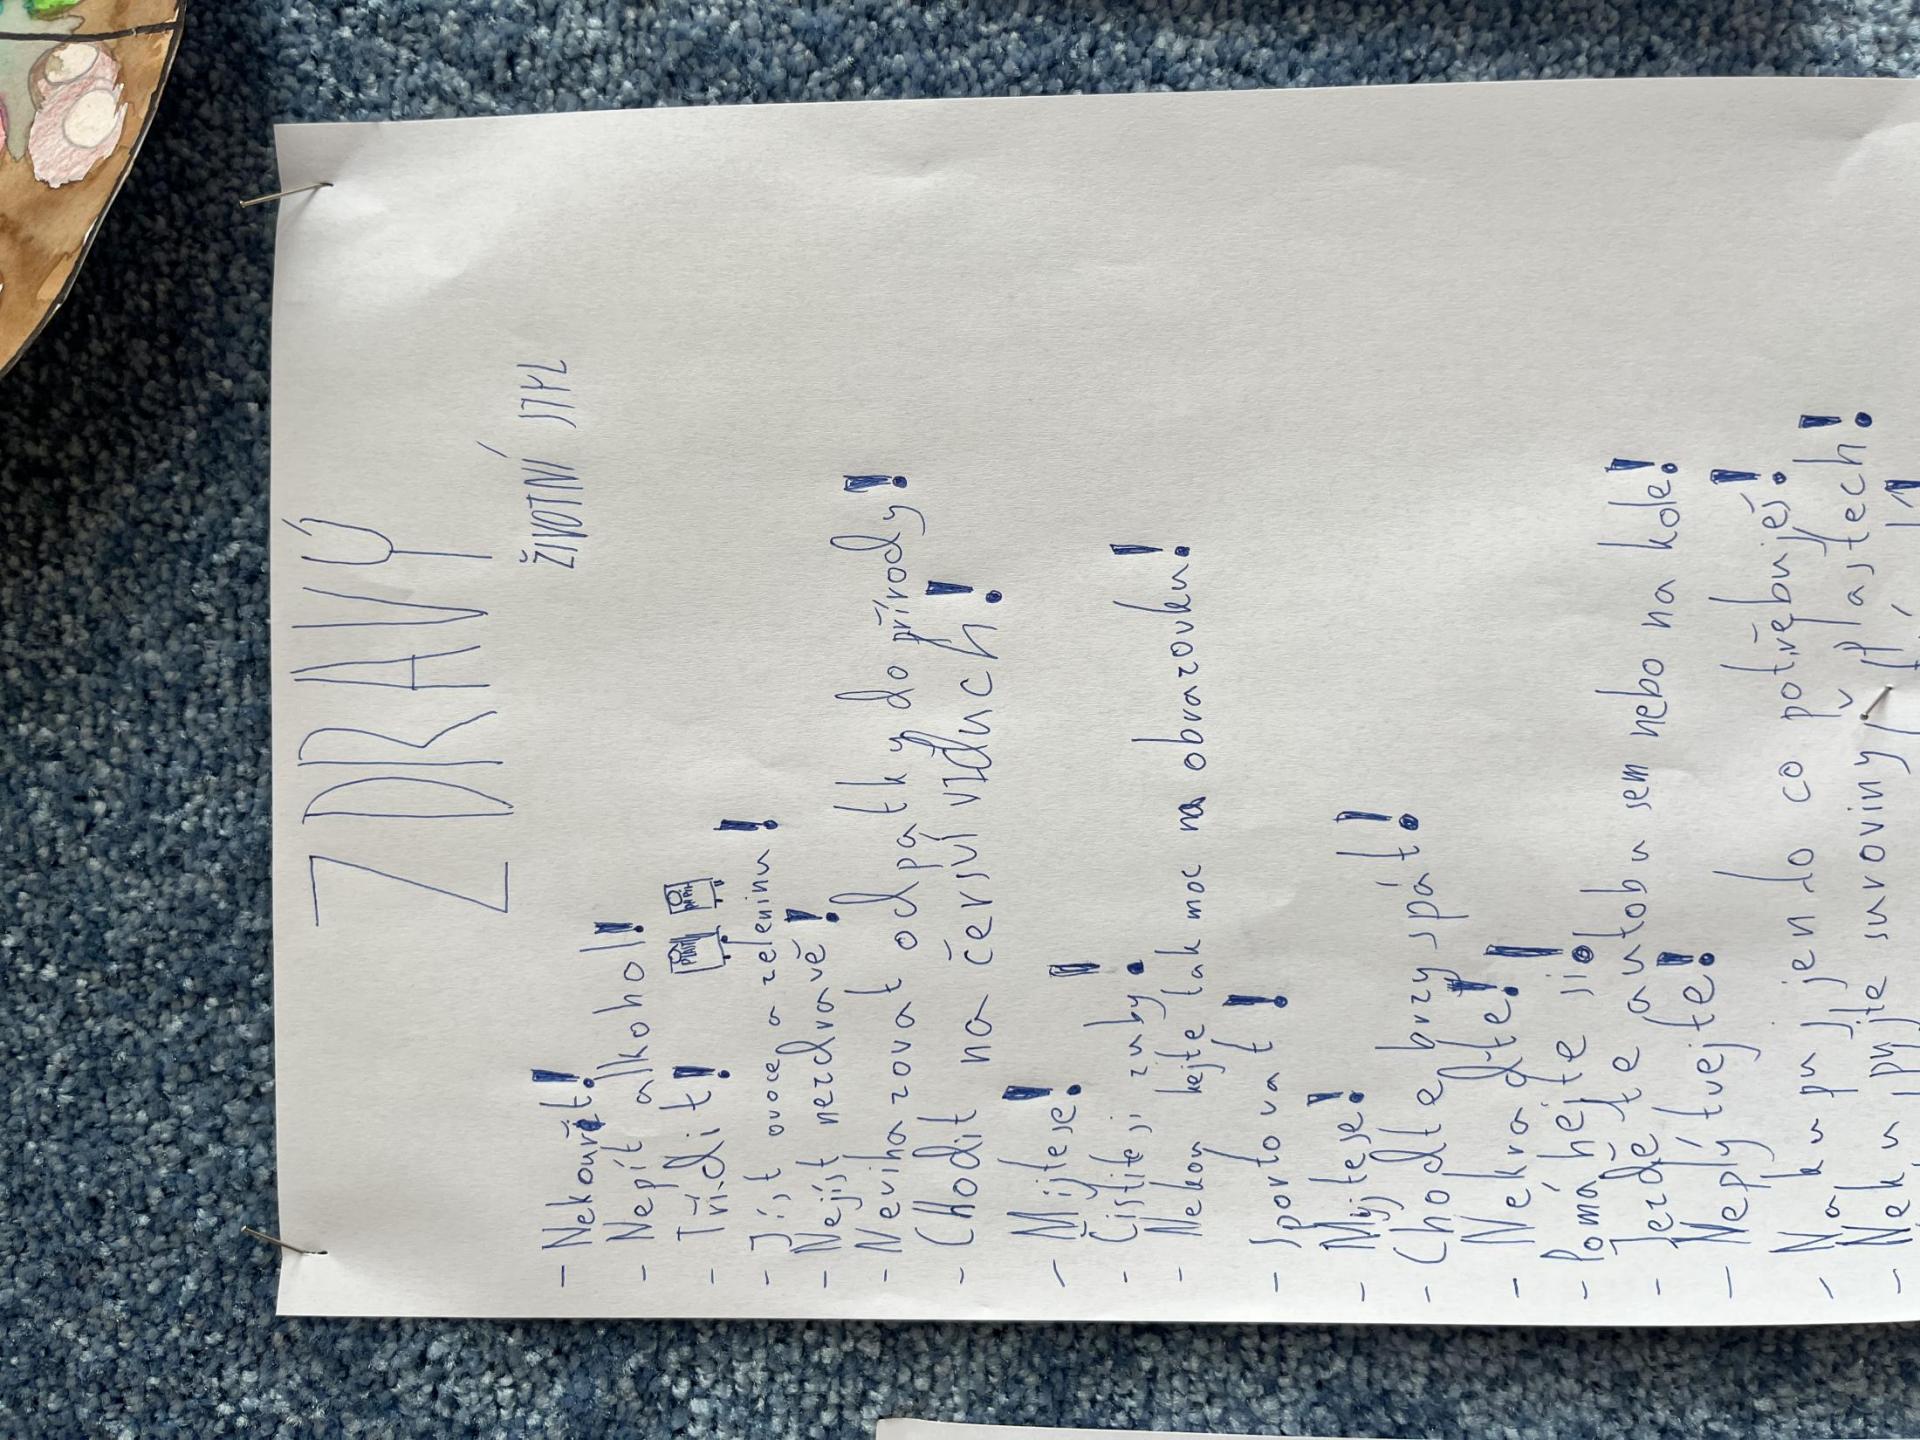 ZDRAVÝ
ŽIVOTNÍ STYL
- Nekouřit!
- Nepít alkohol!
- Třídit!
- Jíst ovoce a zeleninu!
- Nejíst nezdravě!
- Nevihazovat odpatky do přírody!
- Chodit na čerství vzduch!
- Mijtese!
- Čistitesi zuby!
- Nekoukejte tak moc na obrazovku!
- Sportovat!
- Myjtese!
- Chodte brzy spát!
- Nekradte!
- Pomáhejte si!
- Jezděte autobusem nebo na kole!
- Neplýtvejte!
- Nakupuj jen to co potřebuješ!
- Nekupujte suroviny v plastech!